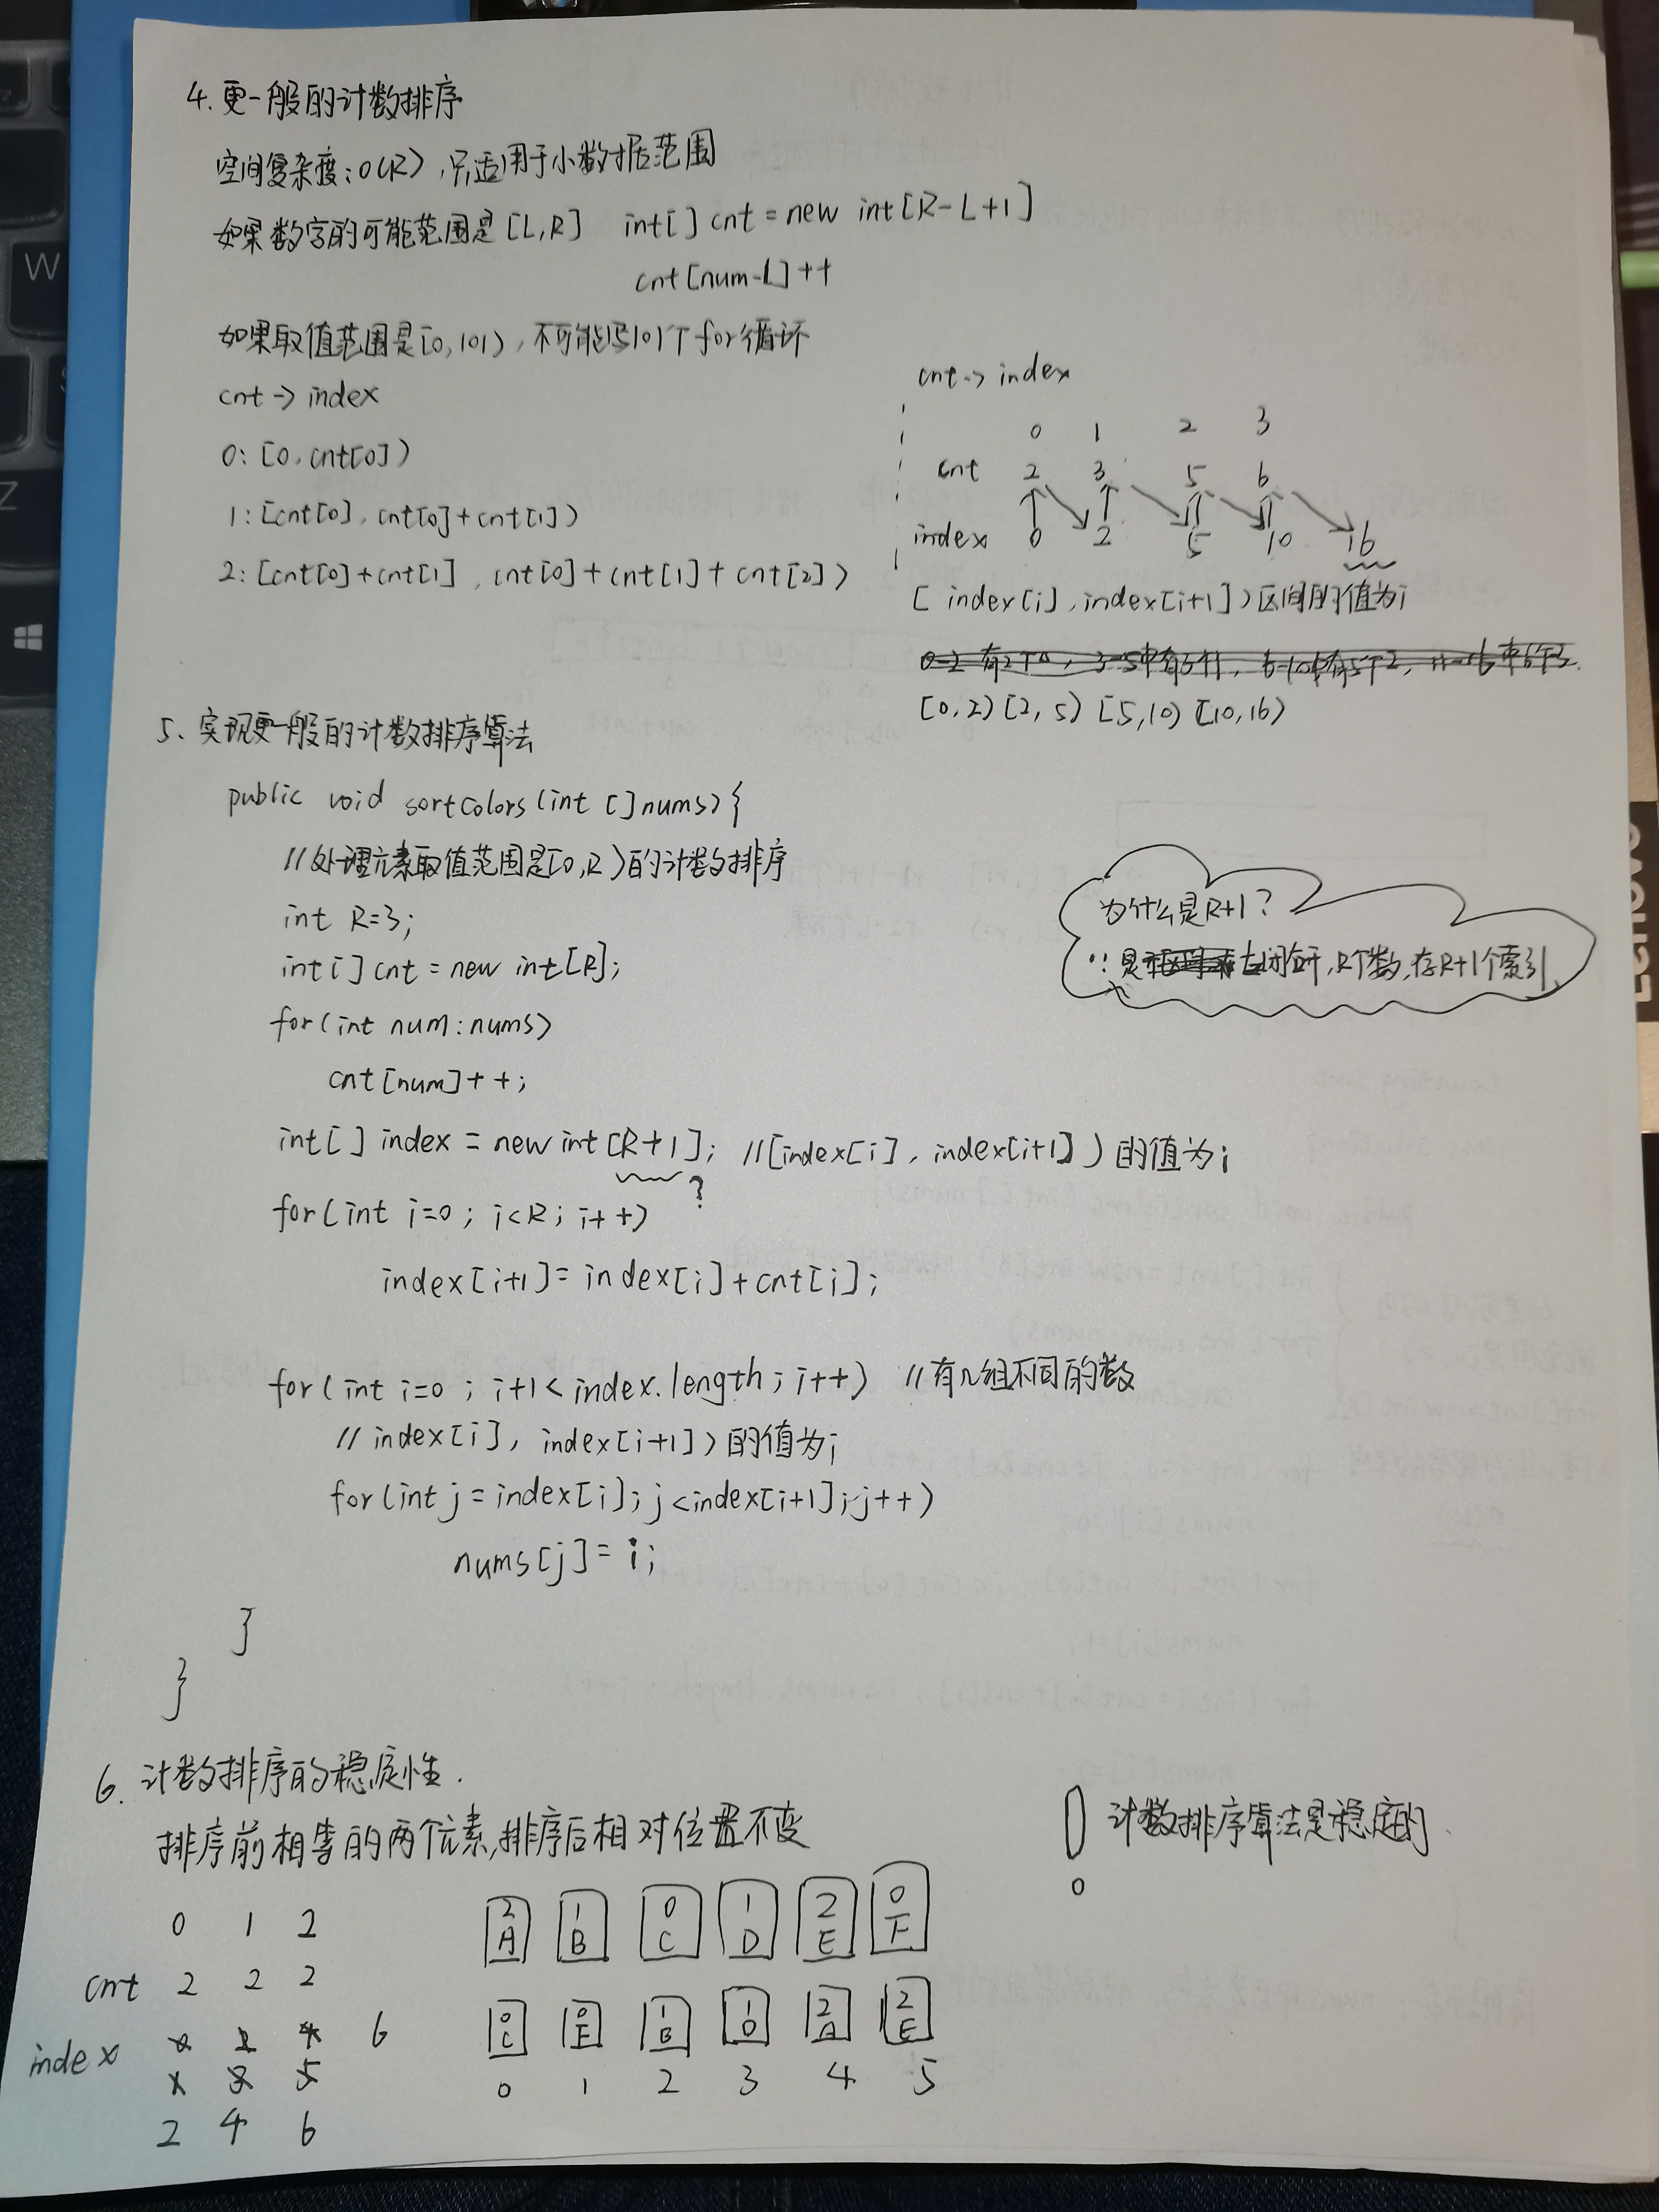 4. 更一般的计数排序
空间复杂度:O(R),只适用于小数据范围
如果数字的可能范围是[L,R] int[] cnt = new int[R-L+1]
cnt[num-L]++
如果取值范围是[0,101),不可能写101个for循环
cnt -> index
0: [0, cnt[0])
1: [cnt[0], cnt[0]+cnt[1])
2: [cnt[0]+cnt[1], cnt[0]+cnt[1]+cnt[2])
cnt -> index
0 1 2 3
cnt 2 3 5 6
index 0 2 5 10 16
[index[i], index[i+1])区间的值为i
[0,2) [2,5) [5,10) [10,16)
5. 实现更一般的计数排序算法
public void sortColors(int []nums){
//处理元素取值范围是[0,R)的计数排序
int R=3;
int[] cnt = new int[R];
for(int num:nums)
cnt[num]++;
int[] index = new int[R+1]; //[index[i], index[i+1])的值为i
?
for(int i=0; i<R; i++)
index[i+1]=index[i]+cnt[i];
for(int i=0; i+1<index.length; i++) //有几组不同的数
// index[i], index[i+1])的值为i
for(int j=index[i]; j<index[i+1]; j++)
nums[j]=i;
}
}
为什么是R+1?
∵是左闭右开,R个数,存R+1个索引.
6. 计数排序的稳定性.
排序前相等的两个元素,排序后相对位置不变
! 计数排序算法是稳定的.
0 1 2
cnt 2 2 2
index 0 2 4 6
1 3 5
2 4 6
2A 1B 0C 1D 2E 0F
0C 0F 1B 1D 2A 2E
0 1 2 3 4 5
W
Z
Lenovo